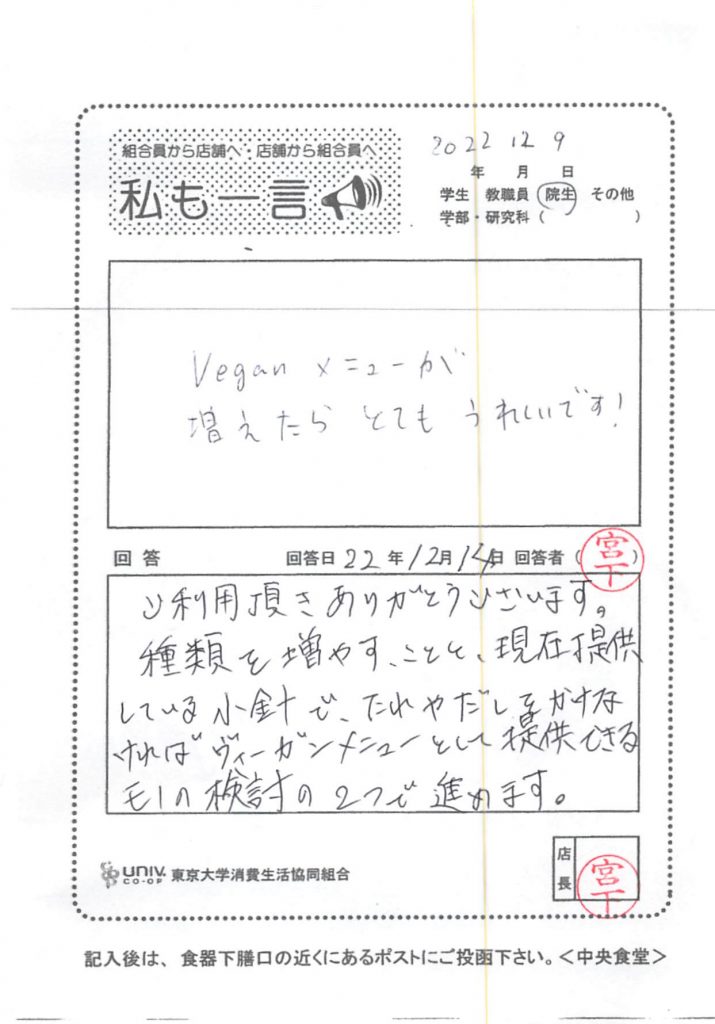 組合員から店舗へ・店舗から組合員へ
私も一言
2022 12 9
年 月 日
学生 教職員 院生 その他
学部・研究科( )
Vegan メニューが
増えたら とても うれしいです!
回答 回答日 22 年 12月 14日 回答者( 宮下 )
ご利用頂きありがとうございます。
種類を増やすことと、現在提供
している小鉢で、たれやだしをかけな
ければヴィーガンメニューとして提供できる
モノの検討の2つで進めます。
UNIV. CO-OP 東京大学消費生活協同組合
店長 宮下
記入後は、食器下膳口の近くにあるポストにご投函下さい。<中央食堂>